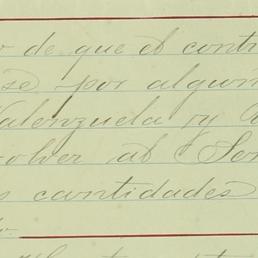 o de que el contr
se por algun
Valenzuela y
olver al Señ
s cantidades